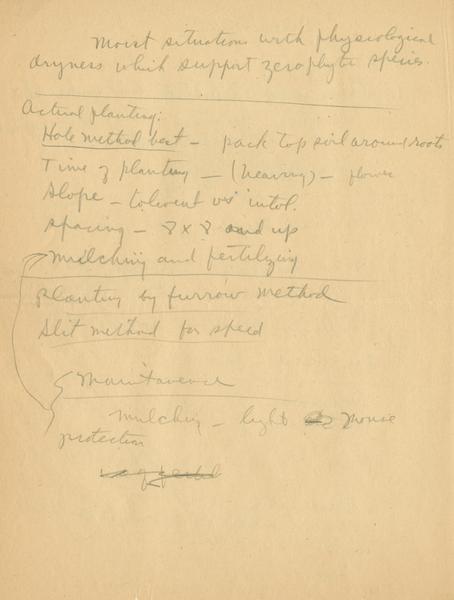 Moist situations with physiological
dryness which support zerophytic species.
Actual planting:
Hole method best - pack top soil around roots
Time of planting - (heaving) -
Slope - tolerent vs intol.
spacing - 8 x 8 and up
mulching and fertilizing
planting by furrow method
Slit method for speed
Maintavence
mulching - light mouse
protection